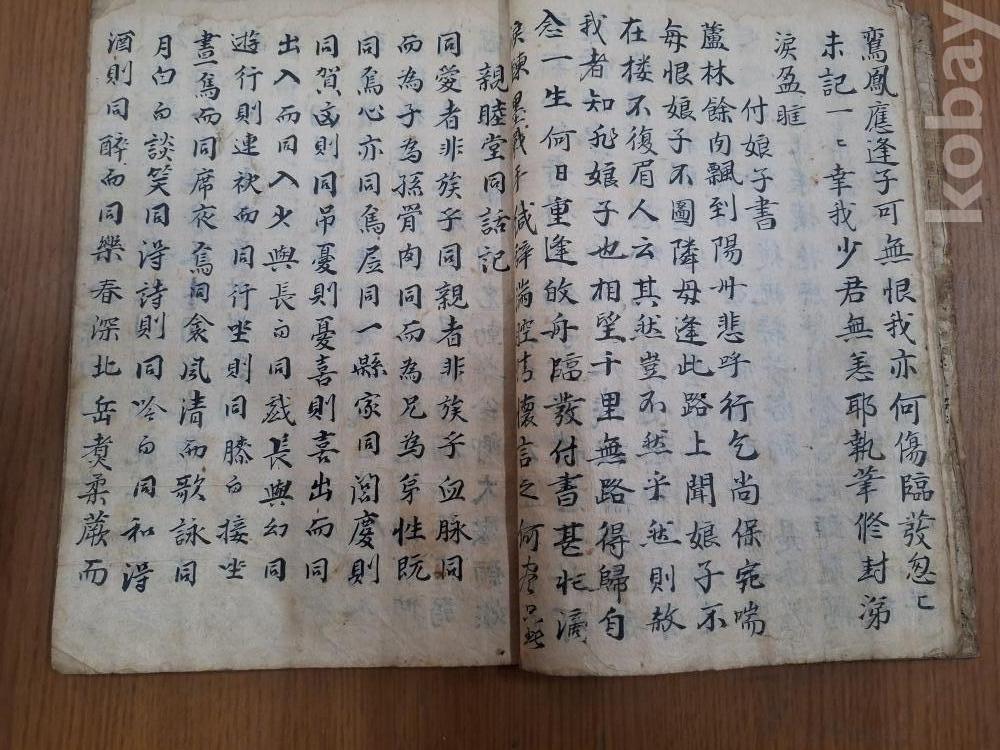 鸞鳳應逢子可無恨我亦何傷臨發忽〻
未記一〻幸我少君無恙耶執筆修封涕
淚盈眶
付娘子書
蘆林餘肉飄到陽州悲呼行乞尚保宛喘
每恨娘子不圖隣母逢此路上聞娘子不
在楼不復眉人云其然豈不然乎然則赦
我者知非娘子也相望千里無路得歸自
念一生何日重逢的舟臨發付書甚忙滴
淚 墨 緘辞 情懷言之何 只此
親睦堂同話記
同愛者非族乎同親者非族乎血脉同
而為子為孫骨肉同而為兄為弟性既
同焉心亦同焉居同一縣家同閭慶則
同賀凶則同吊憂則憂喜則喜出而同
出入而同入少與長而同戱長與幼同
遊行則連袂而同行坐則同膝而接坐
晝焉而同席夜焉同衾風清而歌詠同
月白而談笑同得詩則同吟而同和得
酒則同醉而同樂春深北岳煑柔蕨而
kobay